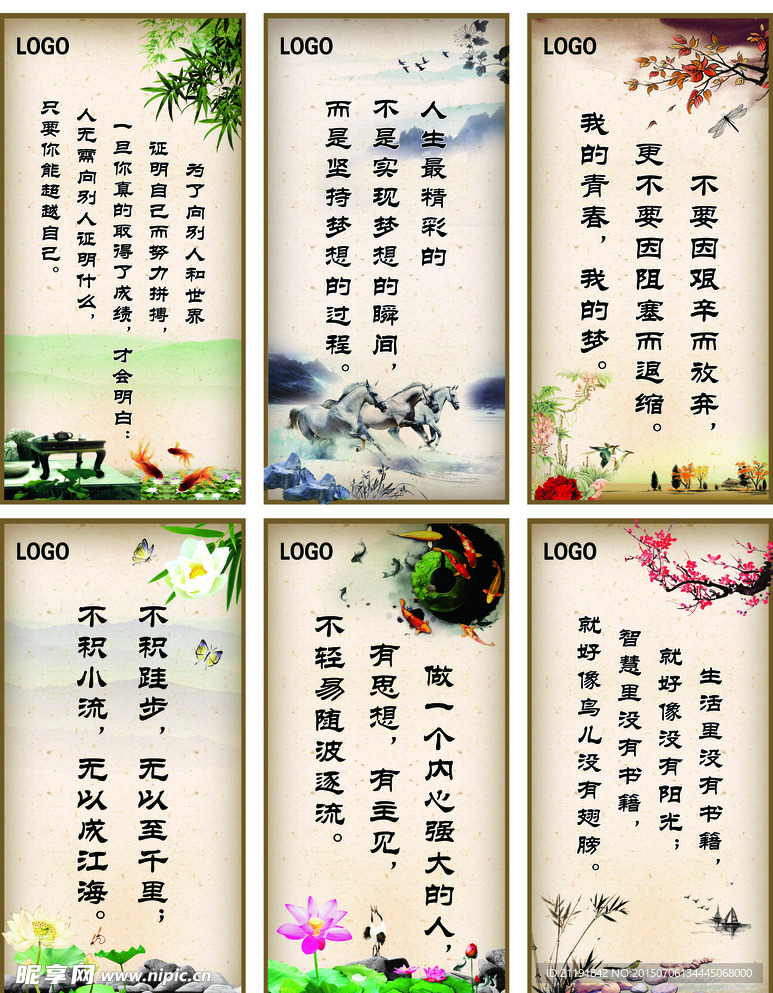 LOGO
为了向别人和世界
证明自己而努力拼搏，
一旦你真的取得了成绩，才会明白：
人无需向别人证明什么，
只要你能超越自己。
LOGO
人生最精彩的
不是实现梦想的瞬间，
而是坚持梦想的过程。
LOGO
不要因艰辛而放弃，
更不要因阻塞而退缩。
我的青春，我的梦。
LOGO
不积跬步，无以至千里；
不积小流，无以成江海。
LOGO
做一个内心强大的人，
有思想，有主见，
不轻易随波逐流。
LOGO
生活里没有书籍，
就好像没有阳光；
智慧里没有书籍，
就好像鸟儿没有翅膀。
昵享网 www.nipic.cn
ID:21191842 NO:20150706134445068000